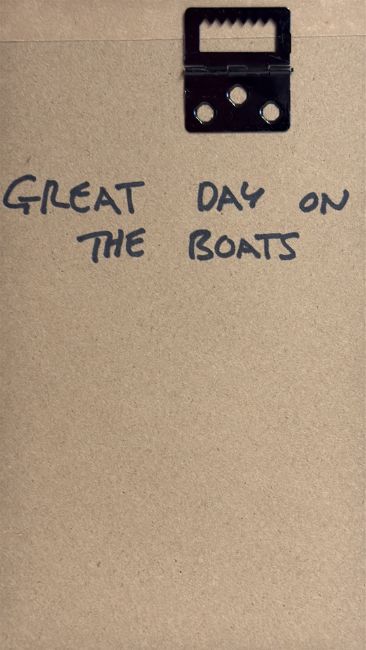 GREAT DAY ON
THE BOATS